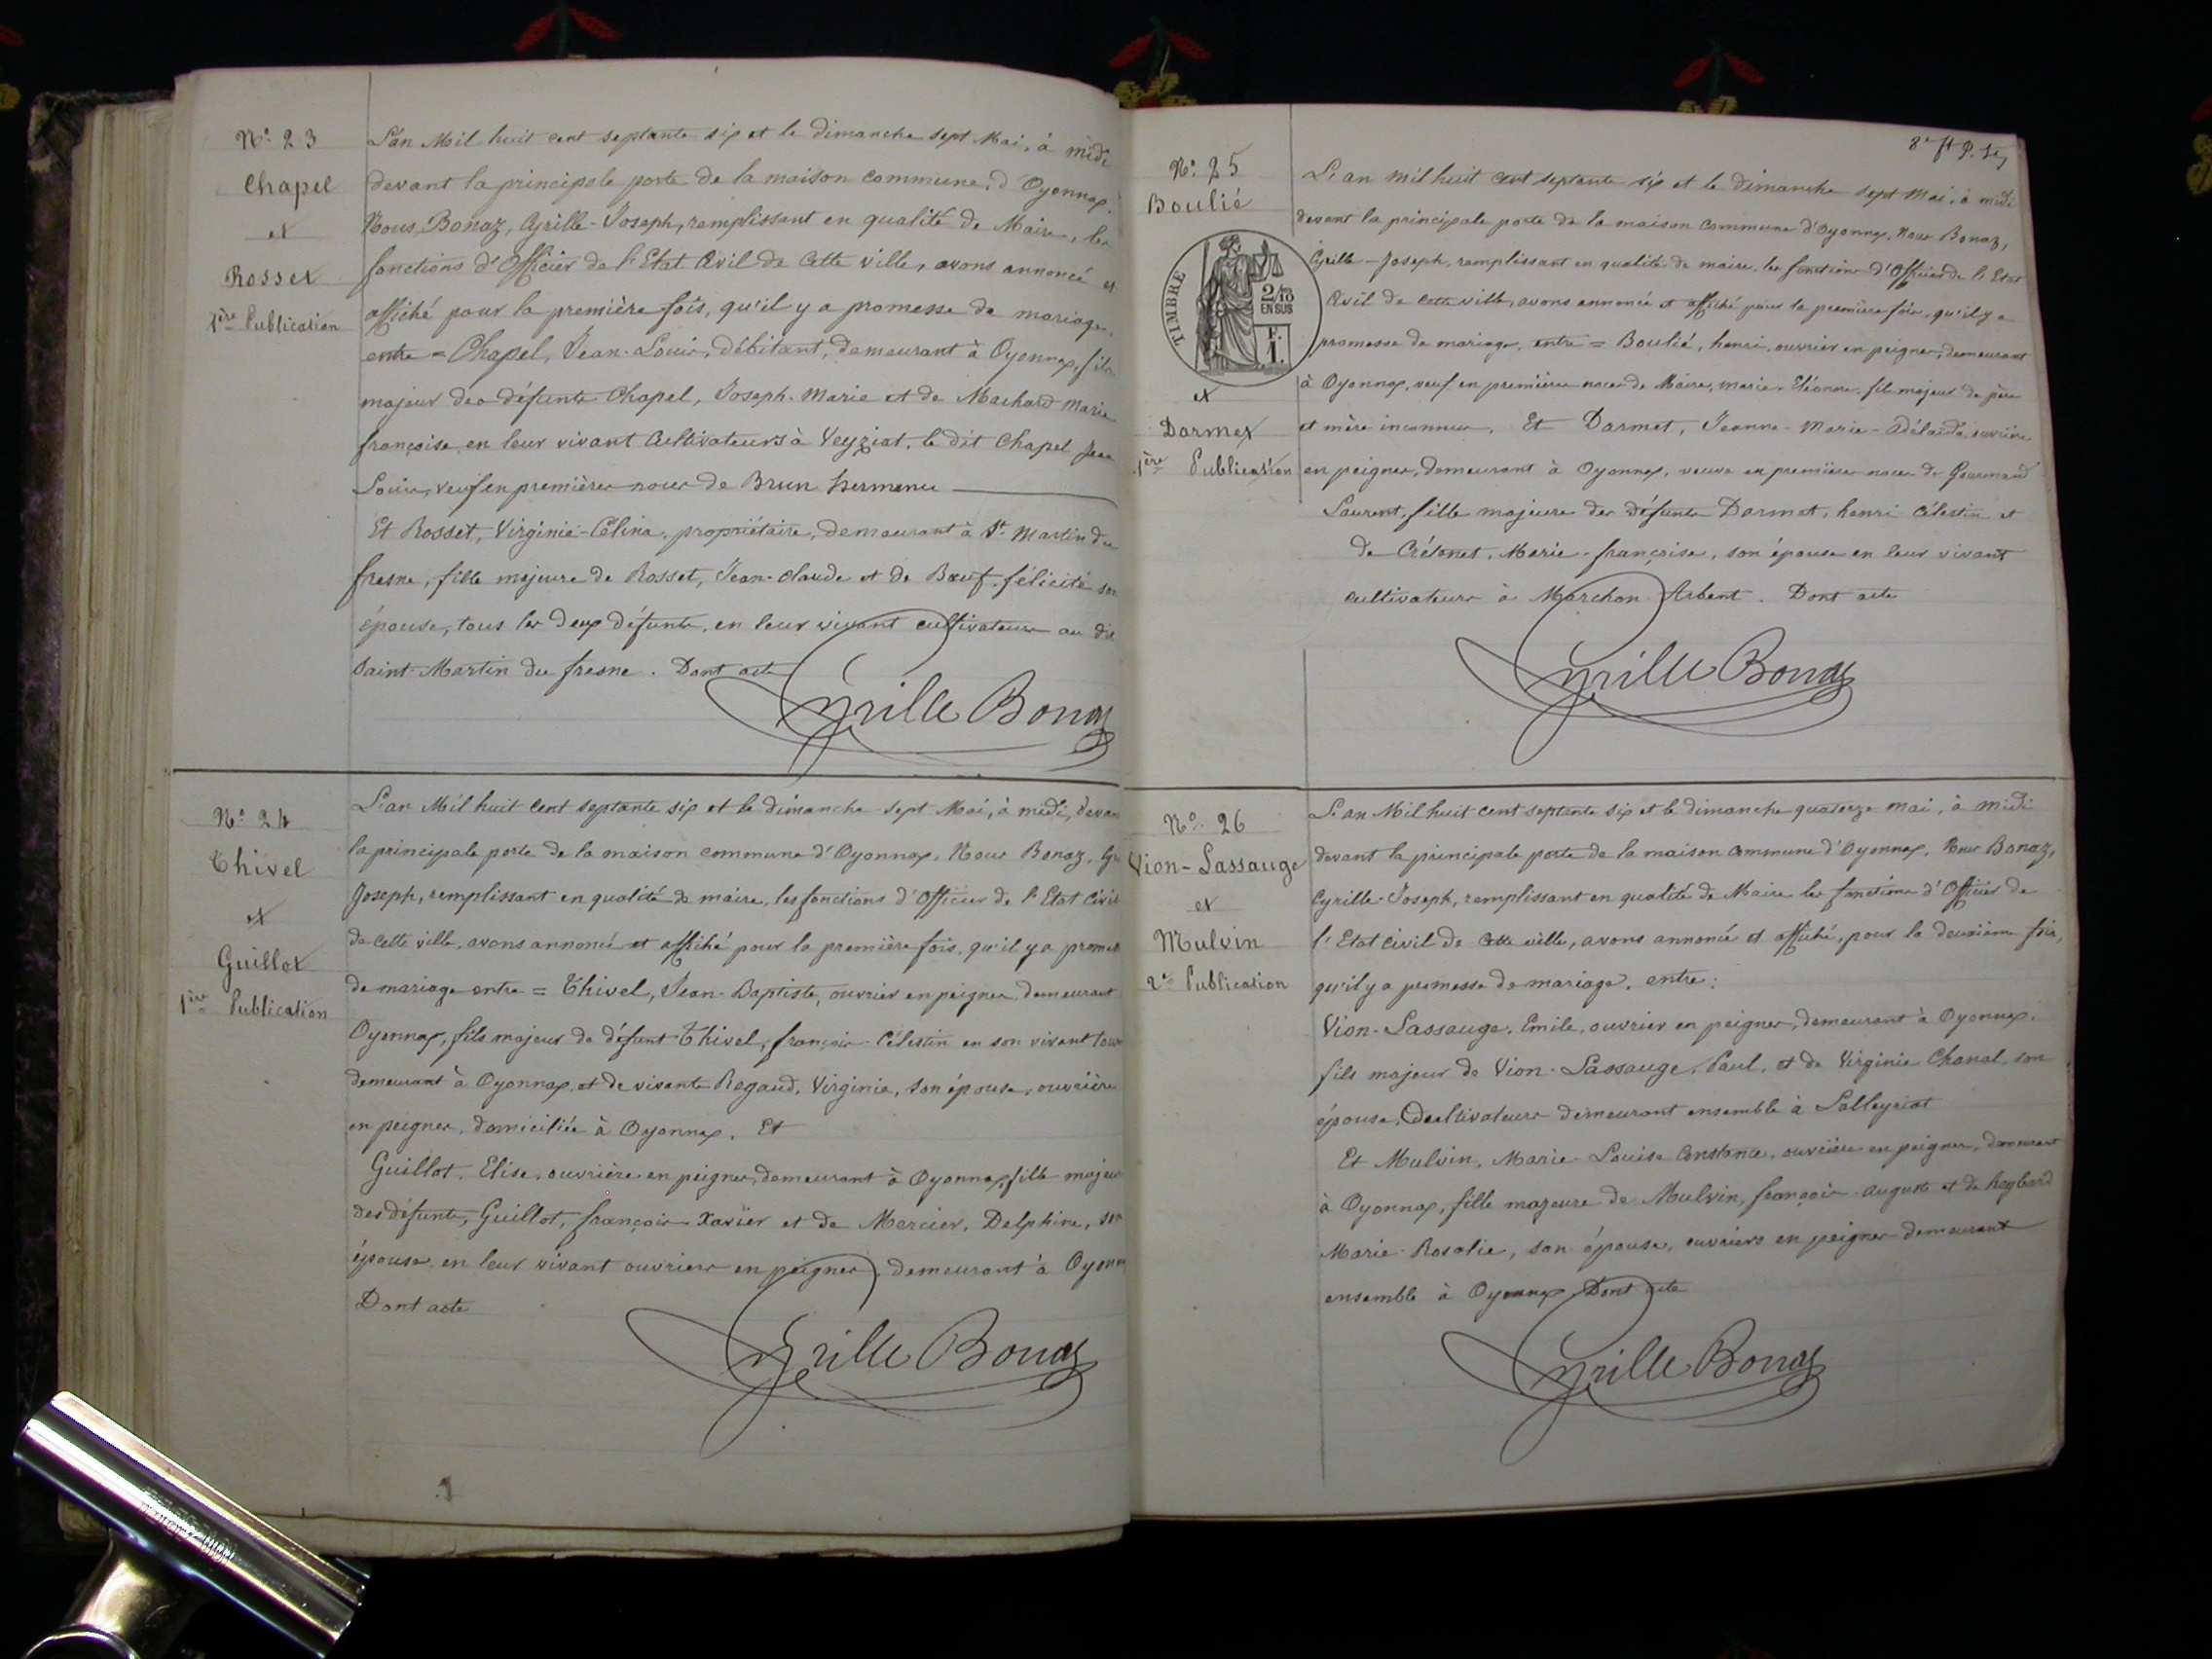 N° 23
Chapel
et
Rosset
1ère Publication
L'an Mil huit cent septante six et le dimanche sept Mai, à midi
devant la principale porte de la maison commune, d'Oyonnax.
Nous, Bonaz, Cyrille-Joseph, remplissant en qualité de Maire, les
fonctions d'Officier de l'Etat Civil de cette ville, avons annoncé et
affiché pour la première fois, qu'il y a promesse de mariage,
entre = Chapel, Jean-Louis, débitant, demeurant à Oyonnax, fils
majeur des défunts Chapel, Joseph-Marie et de Machard Marie
françoise, en leur vivant Cultivateurs à Veyziat, le dit Chapel Jean
Louis, veuf en premières noces de Brun
Et Rosset, Virginie-Célina, propriétaire, demeurant à St Martin du
fresne, fille majeure de Rosset, Jean-claude et de Bœuf, félicité son
épouse, tous les deux défunts, en leur vivant cultivateurs au dit
Saint-Martin du fresne. Dont acte
Cyrille Bonaz
N° 24
Thivel
et
Guillot
1ère Publication
L'an Mil huit Cent septante six et le dimanche sept Mai, à midi, devan
la principale porte de la maison commune d'Oyonnax, Nous Bonaz, Cy
Joseph, remplissant en qualité de maire, les fonctions d'Officier de l'Etat Civil
de cette ville, avons annoncé et affiché pour la première fois, qu'il y a promes
de mariage entre = Thivel, Jean-Baptiste, ouvrier en peignes, demeurant
Oyonnax, fils majeur de défunt Thivel, françois-Célestin en son vivant
demeurant à Oyonnax et de vivante Regaud, Virginie, son épouse, ouvrière
en peignes, domiciliée à Oyonnax. Et
Guillot, Elise, ouvrière en peignes, demeurant à Oyonnax, fille majeu
des défunts, Guillot, françois-Xavier et de Mercier, Delphine, son
épouse, en leur vivant ouvriers en peignes, demeurant à Oyonn
Dont acte
Cyrille Bonaz
N° 25
Boulié
TIMBRE
2/10
EN SUS
F.
1.
et
Darmet
1ère Publication
L'an mil huit cent septante six et le dimanche sept Mai, à midi
devant la principale porte de la maison commune d'Oyonnax, Nous Bonaz,
Cyrille-Joseph, remplissant en qualité de maire, les fonctions d'Officier de l'Etat
Civil de cette ville, avons annoncé et affiché pour la première fois, qu'il y a
promesse de mariage, entre = Boulié, henri, ouvrier en peignes, demeurant
à Oyonnax, veuf en premières noces de Maire, Marie-Eléonore, fils majeur de père
et mère inconnus. Et Darmet, Jeanne-Marie-Adélaïde, ouvrière
en peignes, demeurant à Oyonnax, veuve en premières noces de Gourmand
Laurent, fille majeure des défunts Darmet, henri Célestin et
de Crétonet, Marie-françoise, son épouse en leur vivant
cultivateurs à Marchon Arbent. Dont acte
Cyrille Bonaz
N° 26
Vion-Lassauge
et
Mulvin
2e Publication
L'an Mil huit cent septante six et le dimanche quatorze mai, à midi
devant la principale porte de la maison commune d'Oyonnax, Nous Bonaz,
Cyrille-Joseph, remplissant en qualité de Maire les fonctions d'Officier de
l'Etat civil de cette ville, avons annoncé et affiché, pour la deuxième fois,
qu'il y a promesse de mariage, entre:
Vion-Lassauge, Emile, ouvrier en peignes, demeurant à Oyonnax,
fils majeur de Vion-Lassauge, Paul, et de Virginie Chanal son
épouse, Cultivateurs demeurant ensemble à Lalleyriat
Et Mulvin, Marie-Louise Constance, ouvrière en peignes, demeurant
à Oyonnax, fille majeure de Mulvin, françois-auguste et de
Marie-Rosalie, son épouse, ouvriers en peignes demeurant
ensemble à Oyonnax. Dont acte
Cyrille Bonaz